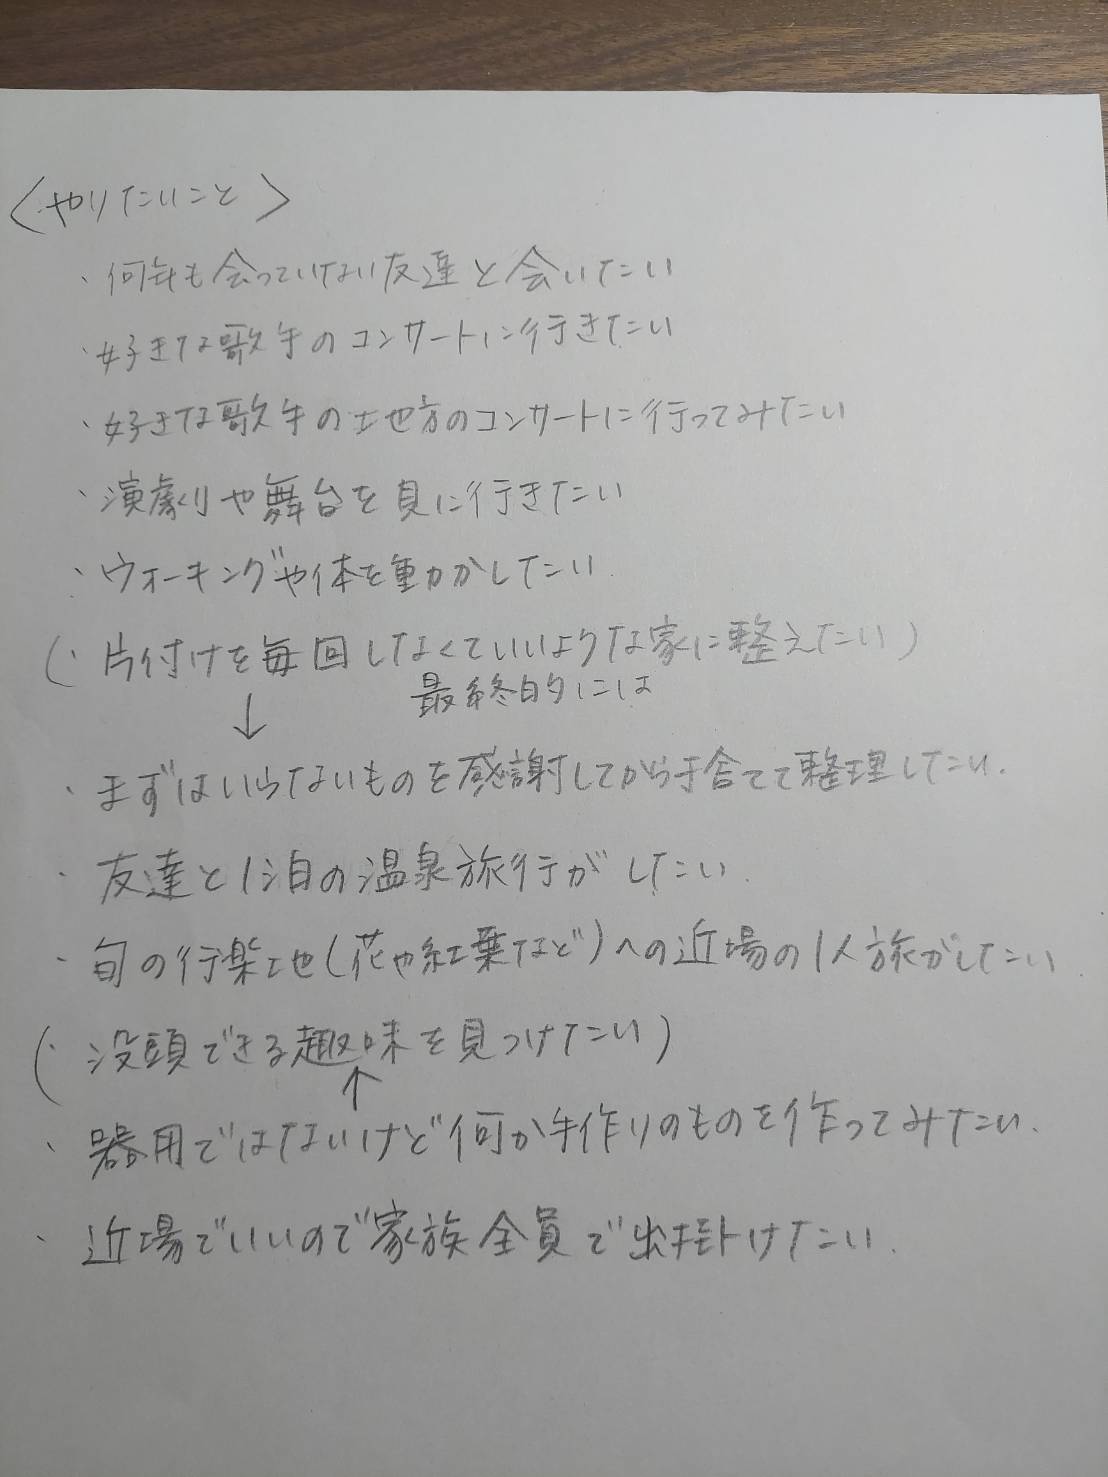 〈やりたいこと〉
・何年も会っていない友達と会いたい
・好きな歌手のコンサートに行きたい
・好きな歌手の地方のコンサートに行ってみたい
・演劇や舞台を見に行きたい
・ウォーキングや体を動かしたい
(・片付けを毎回しなくていいような家に整えたい)
最終的には
↓
・まずはいらないものを感謝してから手捨てて整理したい.
・友達と1泊の温泉旅行がしたい.
・旬の行楽地(花や紅葉など)への近場の1人旅がしたい
(・没頭できる趣味を見つけたい)
↑
・器用ではないけど何か手作りのものを作ってみたい.
・近場でいいので家族全員で出掛けたい.